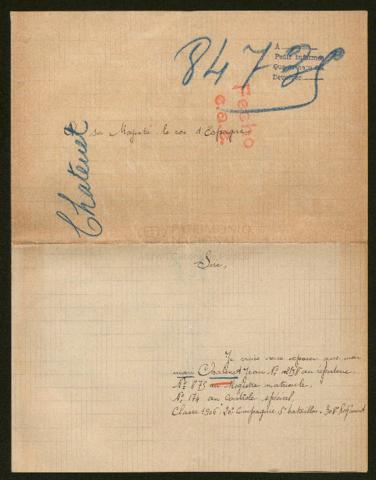 84735
A
Chatenet
Fecho
sa Majesté le roi d'Espagne
Sire,
Je viens vous exposer que mon
mari Chatenet Jean N° au répertoire
N° 875 au Registre matricule.
N° 174 au Contrôle spécial.
Classe 1906, 20e Compagnie, 5e bataillon, 308e Régiment